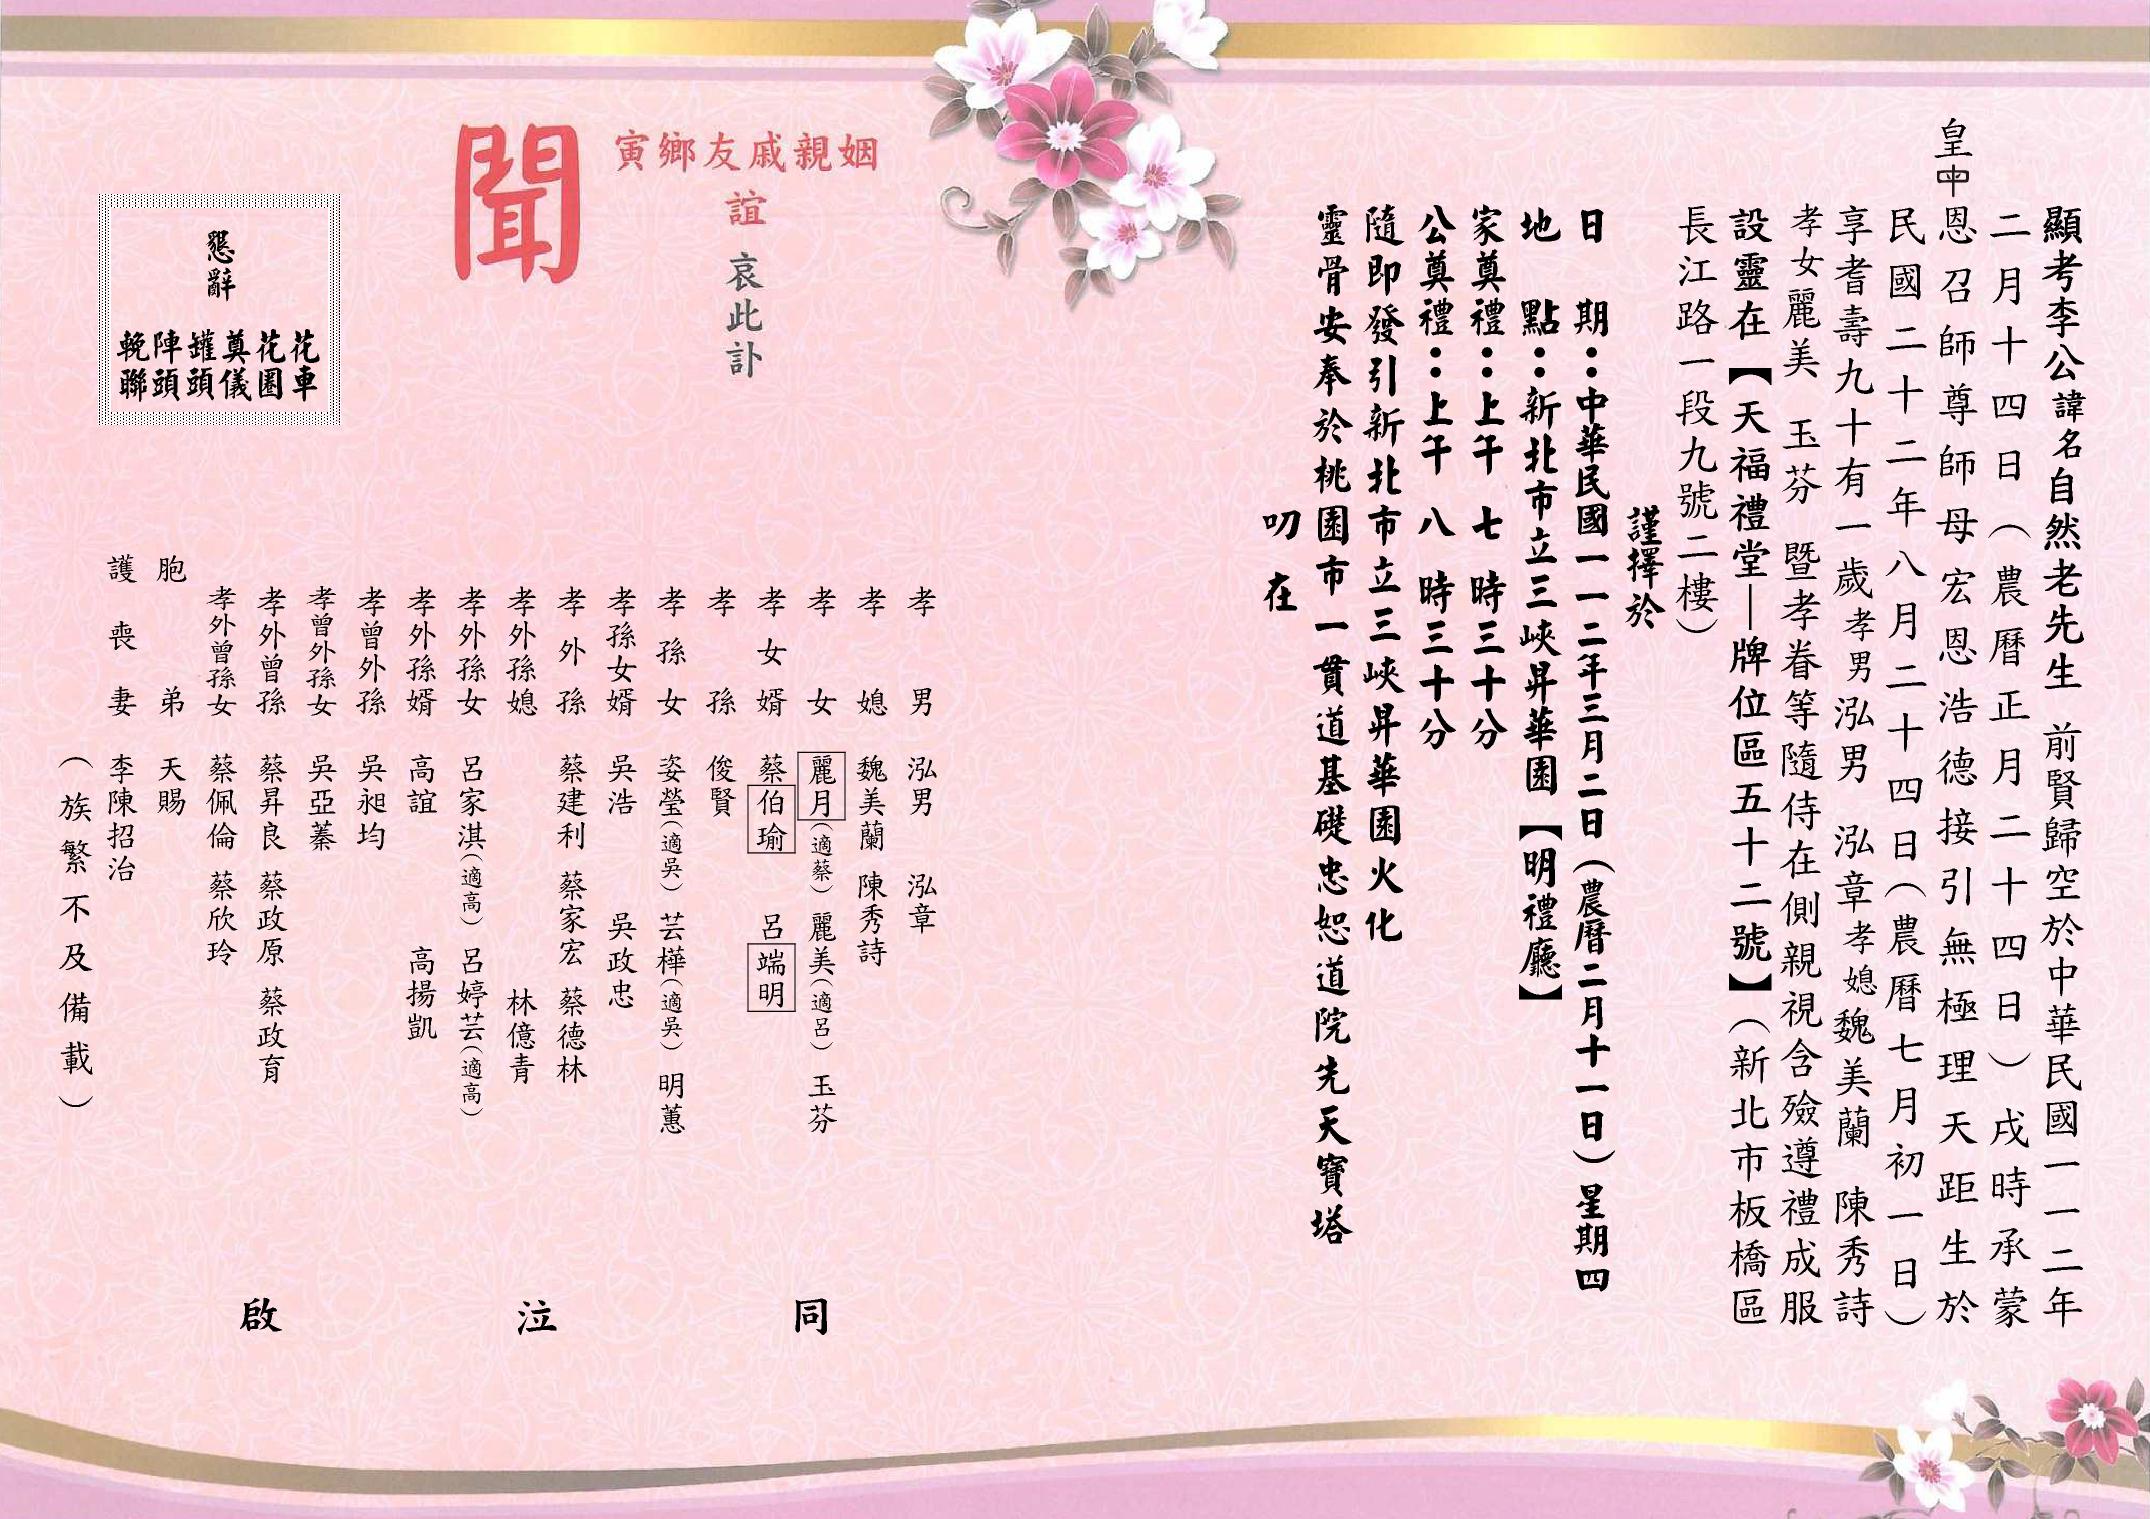 顯考李公諱名自然老先生 前賢歸空於中華民國一一二年
二月十四日（農曆正月二十四日）戌時承蒙
皇中恩召師尊師母宏恩浩德接引無極理天距生於
民國二十二年八月二十四日（農曆七月初一日）
享耆壽九十有一歲孝男泓男 泓章孝媳魏美蘭 陳秀詩
孝女麗美 玉芬 暨孝眷等隨侍在側親視含殮遵禮成服
設靈在【天福禮堂—牌位區五十二號】（新北市板橋區
長江路一段九號二樓）
謹擇於
日期：中華民國一一二年三月二日（農曆二月十一日）星期四
地點：新北市立三峽昇華園【明禮廳】
家奠禮：上午 七 時三十分
公奠禮：上午 八 時三十分
隨即發引新北市立三峽昇華園火化
靈骨安奉於桃園市一貫道基礎忠恕道院先天寶塔
叨在
姻親戚友鄉寅
誼 哀此訃
聞
孝男 泓男 泓章
孝媳 魏美蘭 陳秀詩
孝女 麗月（適蔡） 麗美（適呂） 玉芬
孝女婿 蔡伯瑜 呂端明
孝孫 俊賢
孝孫女 姿瑩（適吳） 芸樺（適吳） 明蕙
孝孫女婿 吳浩 吳政忠
孝外孫 蔡建利 蔡家宏 蔡德林
孝外孫媳 林億青
孝外孫女 呂家淇（適高） 呂婷芸（適高）
孝外孫婿 高誼 高揚凱
孝曾外孫 吳昶均
孝曾外孫女 吳亞蓁
孝外曾孫 蔡昇良 蔡政原 蔡政育
孝外曾孫女 蔡佩倫 蔡欣玲
胞弟 天賜
護喪妻 李陳招治
（族繁不及備載）
同泣啟
懇辭
花車
花圈
奠儀
罐頭
陣頭
輓聯